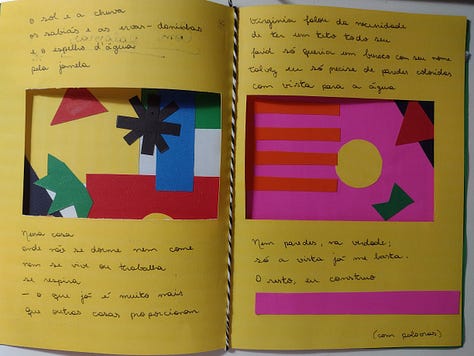 o sol e a chuva
os sabiás e as ervas-daninhas
e o espelho d'água
pela janela
Nessa casa
onde não se dorme nem come
nem se vive ou trabalha
se respira
– o que já é muito mais
que outras casas proporcionam
Virginia falou da necessidade
de ter um teto todo seu
só queria um buraco com seu nome
talvez eu só precise de paredes coloridas
com vista para a água
Nem paredes, na verdade;
só a vista já me basta.
O resto, eu construo
(com palavras)